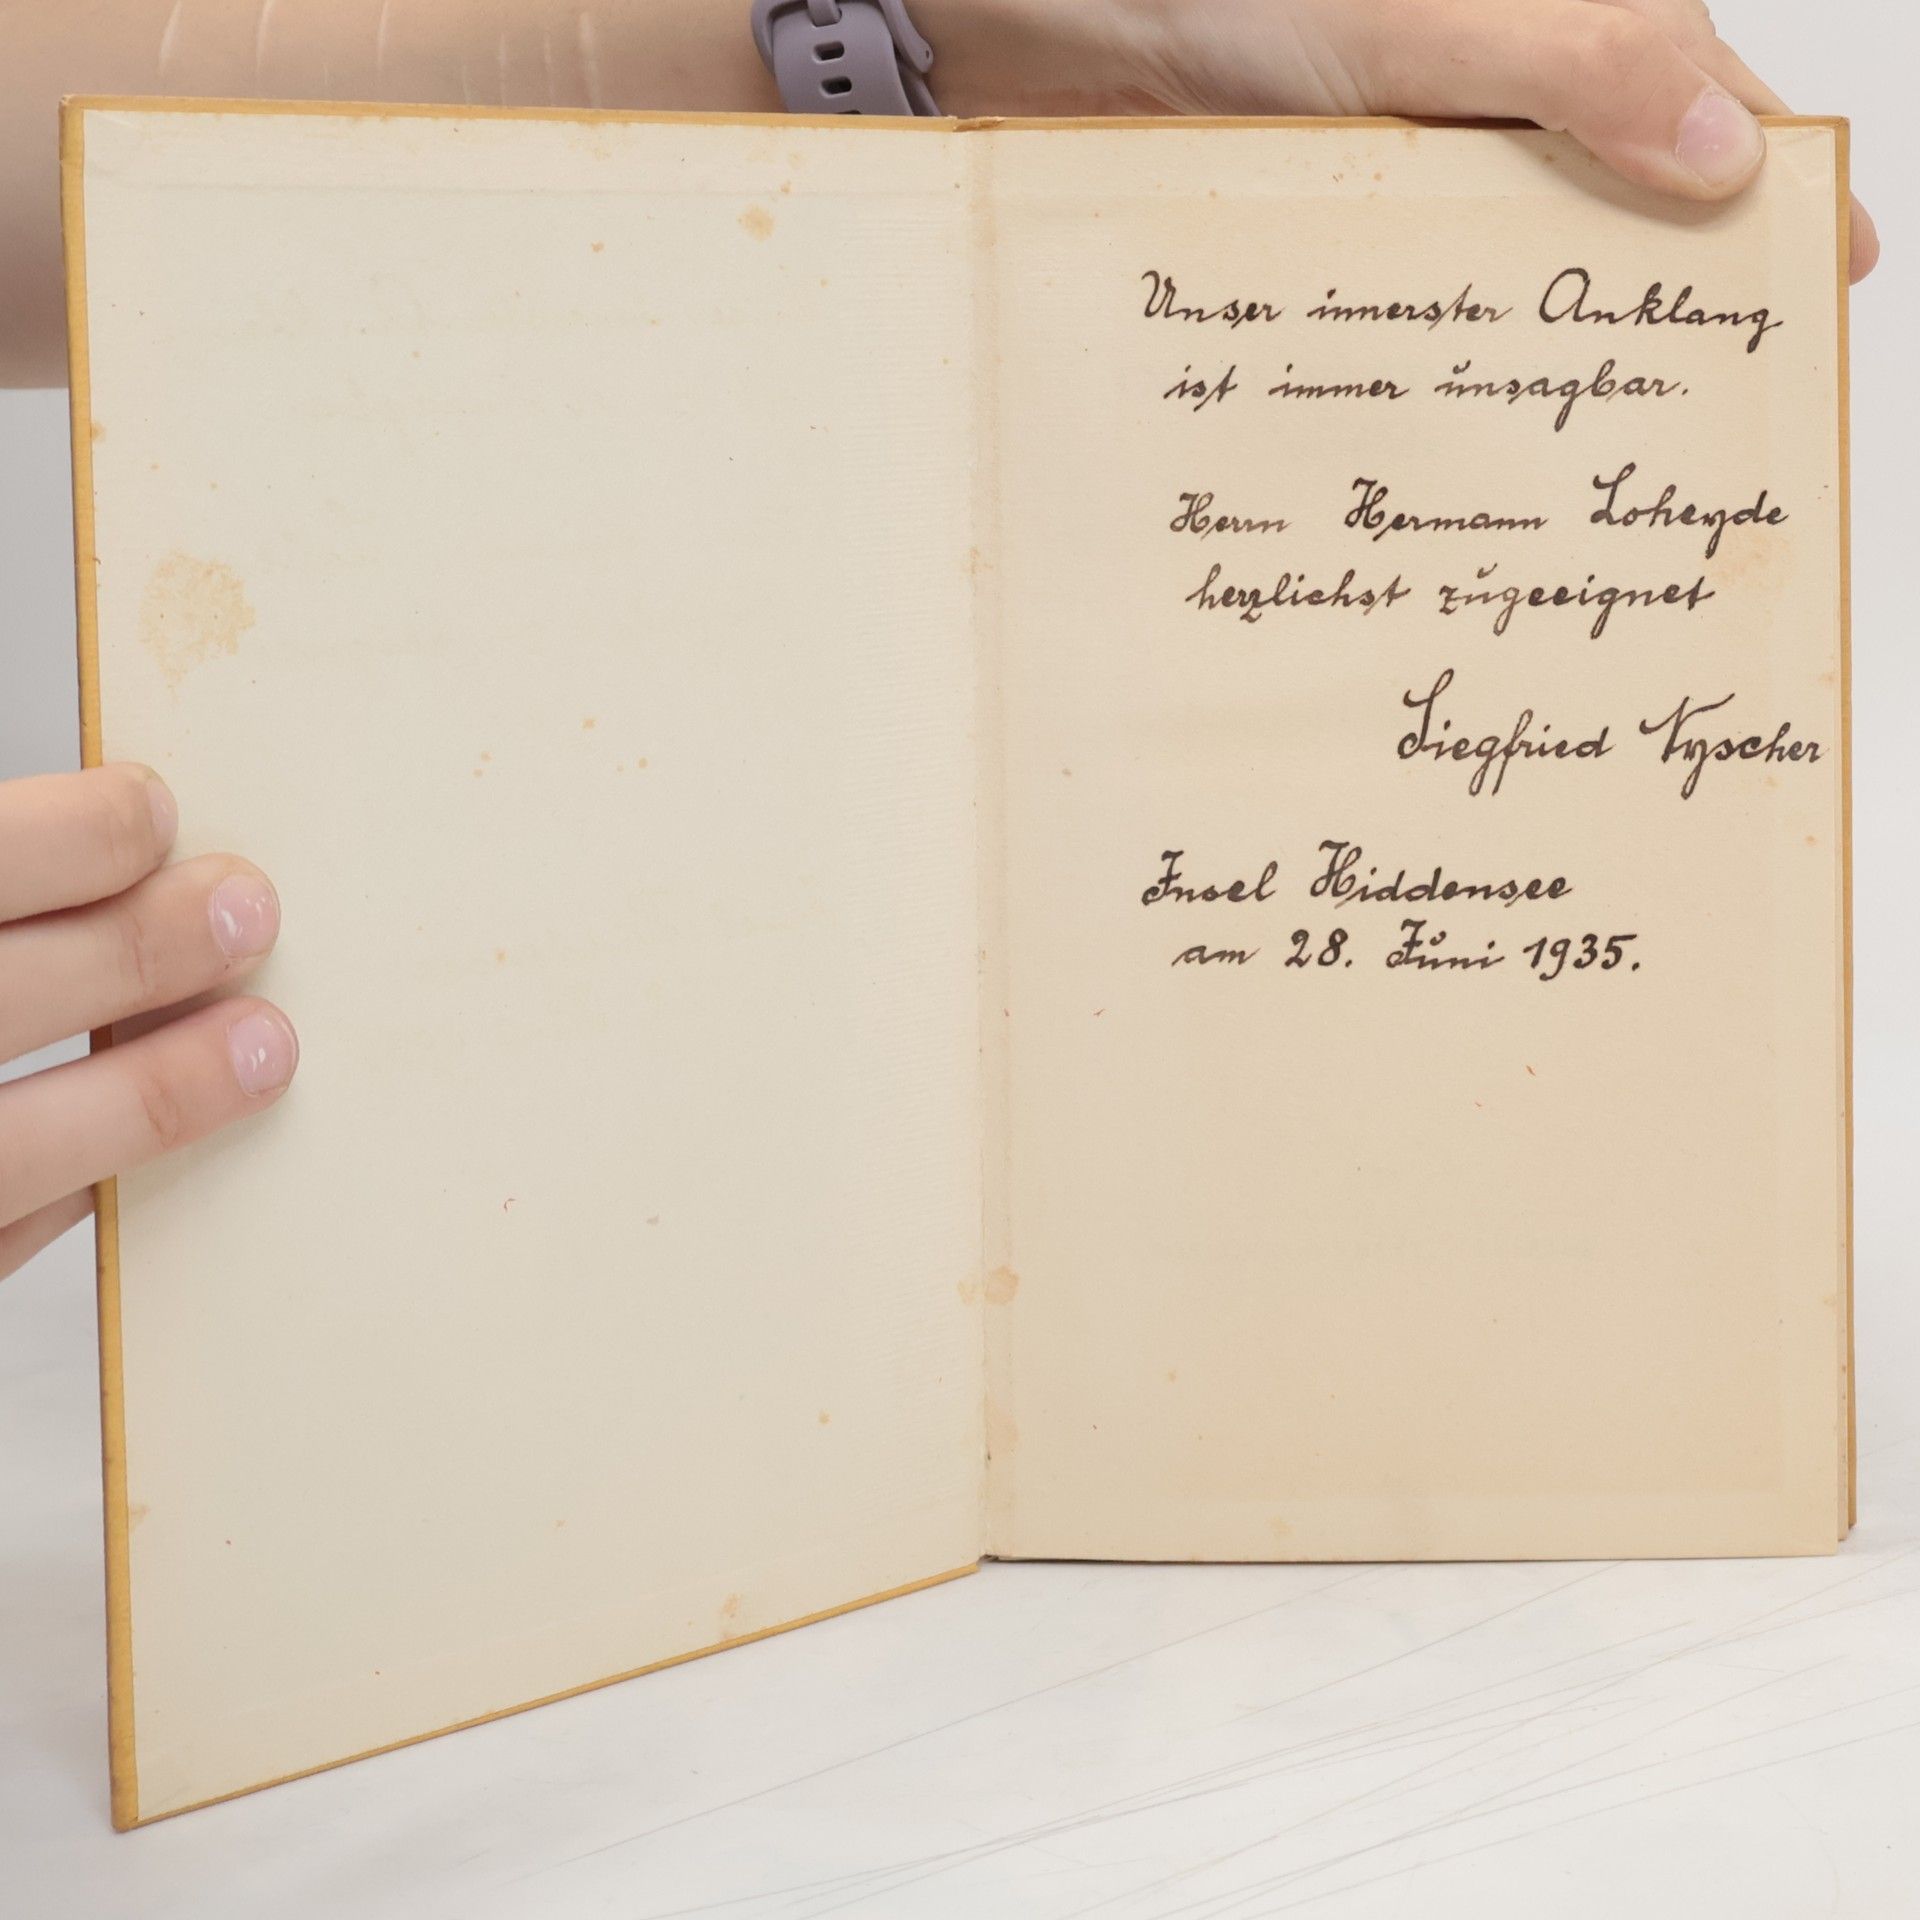 Unser innerster Anklang
ist immer unsagbar.
Herrn Hermann Loheyde
herzlichst zugeeignet
Siegfried
Insel Hiddensee
am 28. Juni 1935.